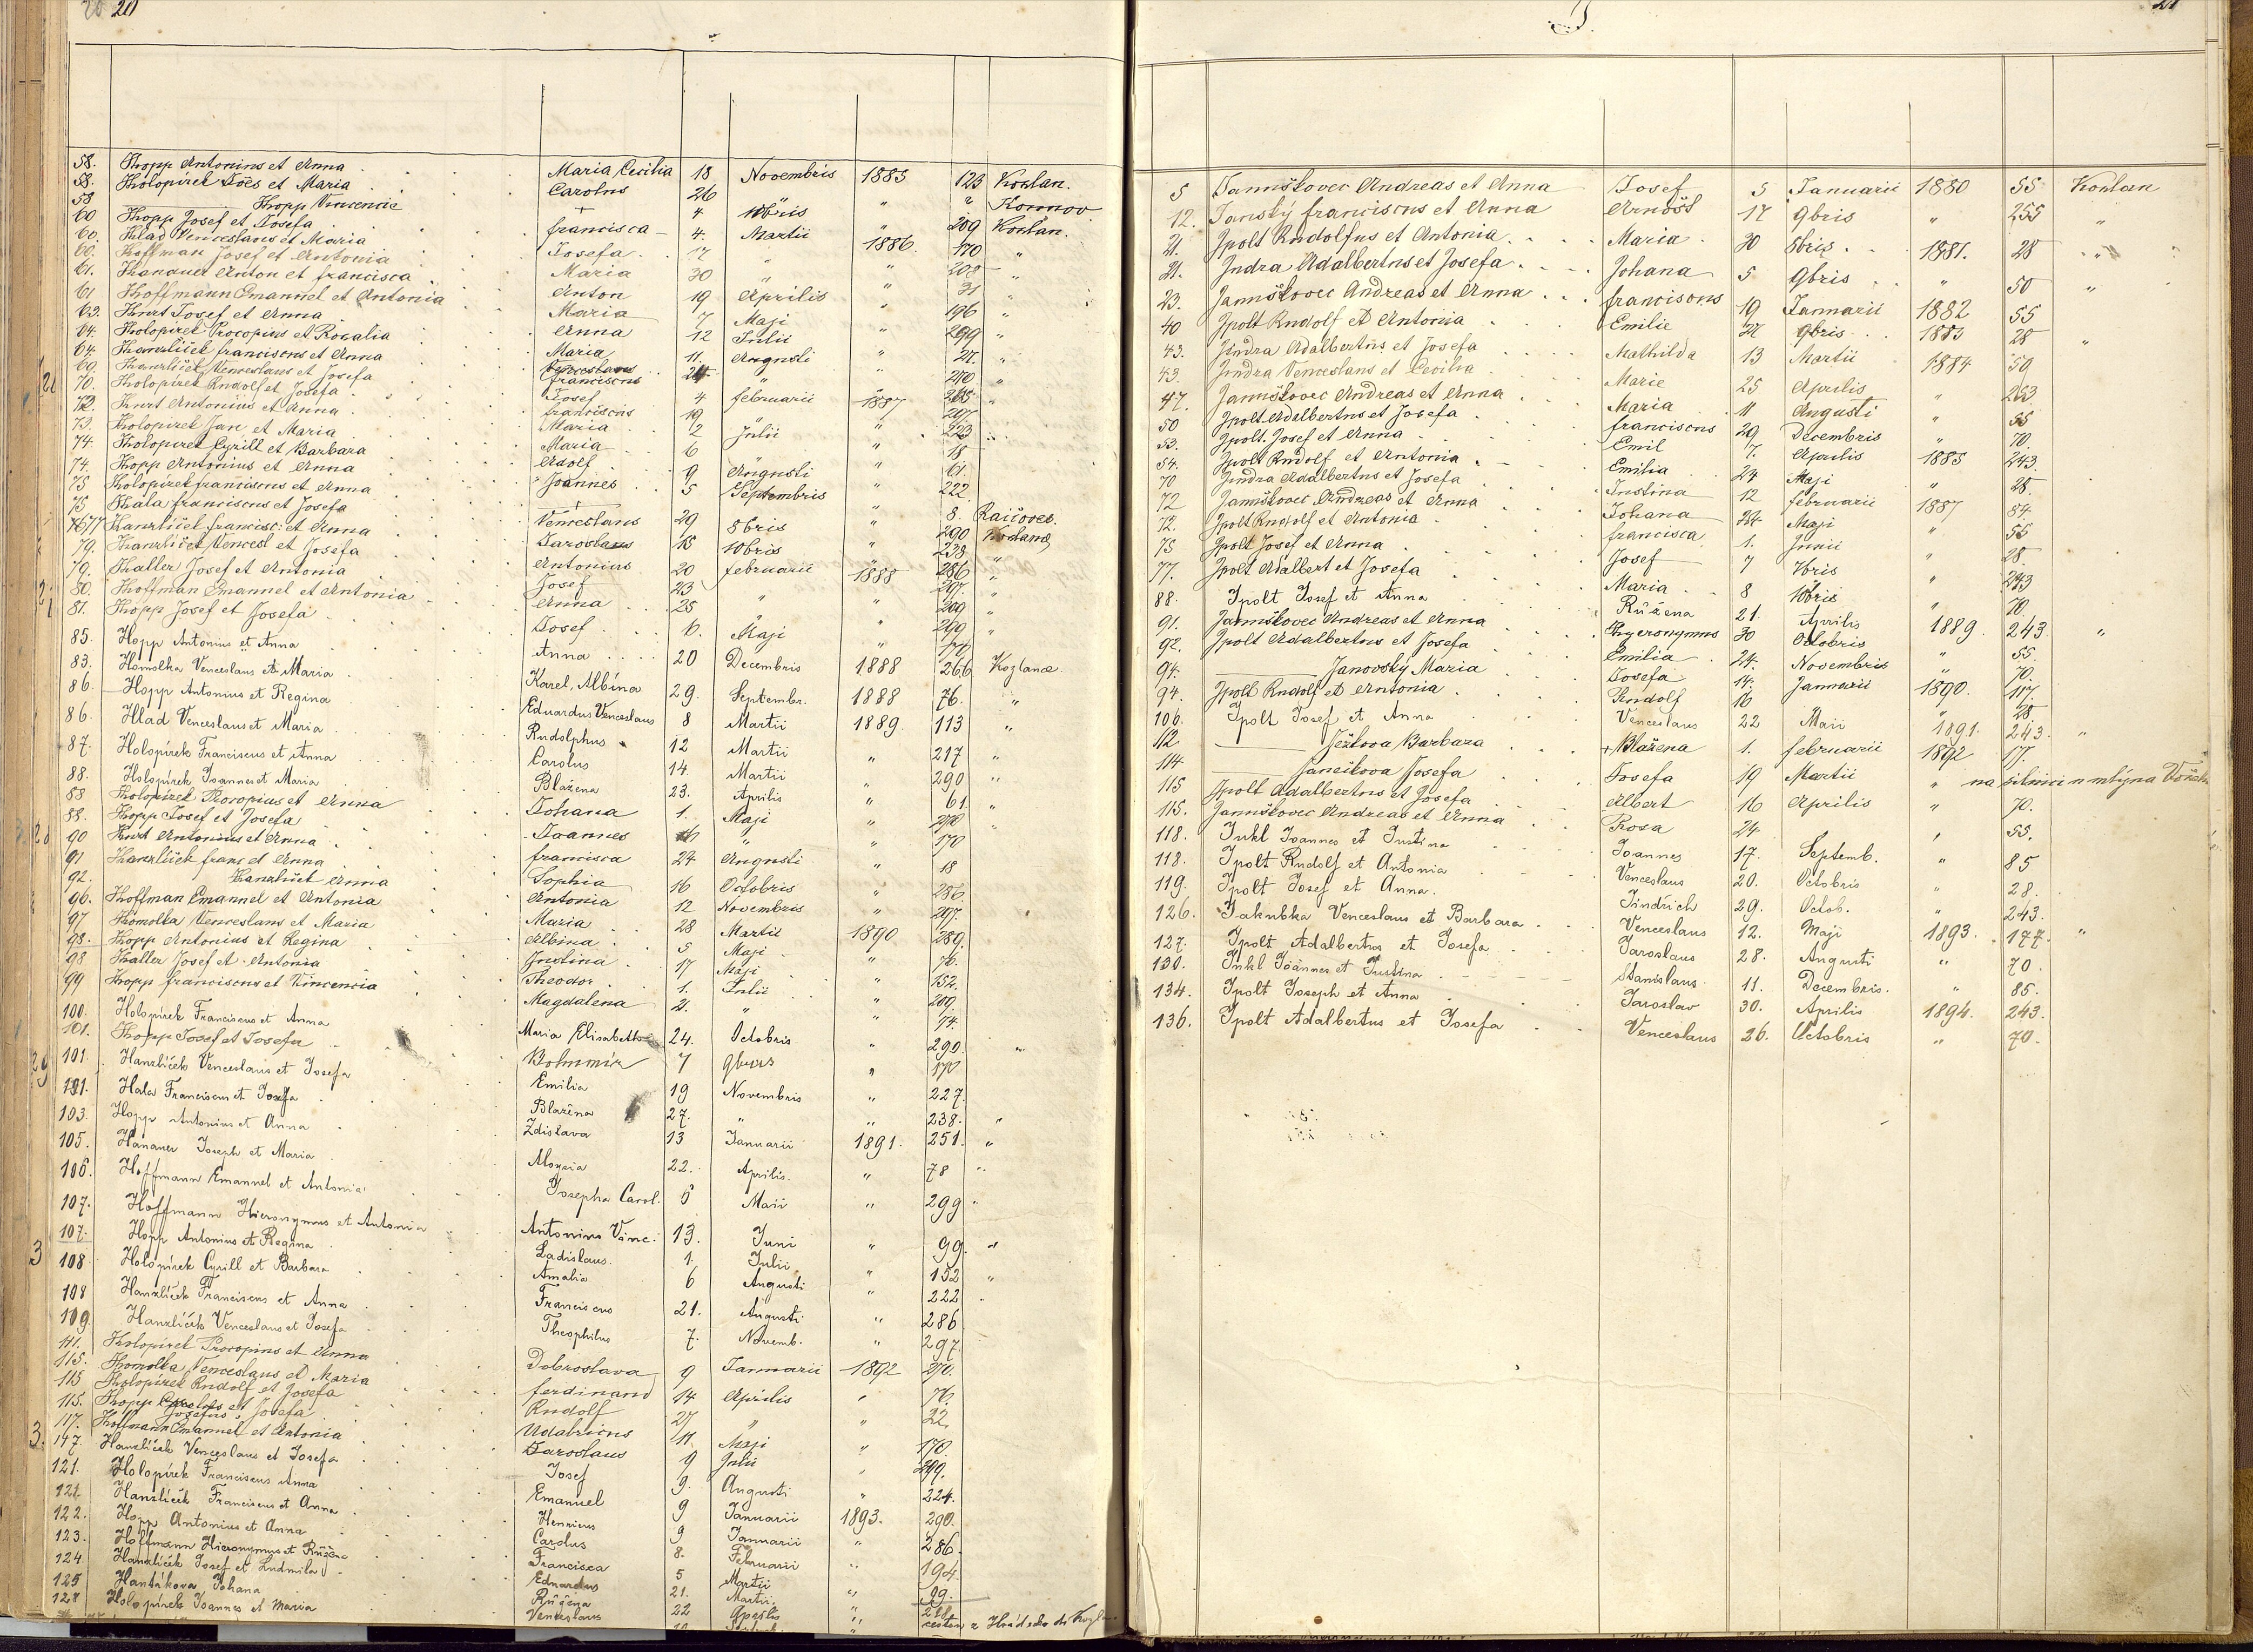 20
58. Hopp Antonius et Anna Maria Cecilia 18 Novembris 1885 123 Kozlan.
58. Holopírek Joës et Maria Carolus 26 " " " Kornov
58 Hopp Vincencie + 4 10bris " 209 Kozlan.
60 Hopp Josef et Josefa francisca 4. Martii 1886 170 "
60. Hlad Venceslaus et Maria Josefa 17 " "
60. Hoffman Josef et Antonia Maria 30 " "
61. Hanauer Anton et francisca Anton 19 Aprilis "
61 Hoffmann Emanuel et Antonia Maria 7 Maji "
63. Hurt Josef et Anna Anna 12 Julii "
64. Holopírek Procopius et Rosalia Maria 11. Augusti "
64. Hanzlíček franciscus et Anna franciscus
69. Hanzlíček Venceslaus et Josefa Josef 4 februarii 1887
70. Holopírek Rudolf et Josefa franciscus 19 "
72. Hurt Antonius et Anna Maria 2 Julii "
73. Holopírek Jan et Maria Maria 6 "
74 Holopírek Cyrill et Barbara Adolf 9 Augusti "
74. Hopp Antonius et Anna Joannes 5 Septembris "
75 Holopírek franciscus et Anna
75 Hála franciscus et Josefa Venceslaus 29 8bris "
77 Hanzlíček francisc. et Anna Jaroslaus 15 10bris "
79. Hanzlíček Vencesl et Josefa Antonius 20 februarii 1888 286
79. Haller Josef et Antonia Josef 23 "
80. Hoffman Emanuel et Antonia Anna 25 "
81. Hopp Josef et Josefa Josef 6. Maji "
85. Hopp Antonius et Anna Anna 20 Decembris 1888 266 Kozlance
83. Homolka Venceslaus et Maria Karel, Albína 29. Septembr. 1888 76. "
86. Hopp Antonius et Regina Eduardus Venceslaus 8 Martii 1889. 113 "
86. Hlad Venceslaus et Maria Rudolphus 12 Martii " 217 "
87. Holopírek Franciscus et Anna Carolus 14. Martii " 290 "
88. Holopírek Joannes et Maria Blažena 23. Aprilis " 61. "
88 Holopírek Procopius et Anna Johana 1. Maji " 270 "
88. Hopp Josef et Josefa Joannes " " 170
90 Hurt Antonius et Anna francisca 27 Augusti " 18
91 Hanzlíček franc et Anna Sophia 16 Octobris " 286
92. Hanzlíček Anna Antonia 12 Novembris " 297.
96. Hoffman Emanuel et Antonia Maria 28 Martii 1890 289.
97 Homolka Venceslaus et Maria Albina 5 Maji " 76.
98. Hopp Antonius et Regina Justina 17 Maji " 152.
98 Haller Josef et Antonia Theodor 1. Julii "
99 Hopp franciscus et Vincencia Magdalena 2. " " 74.
100. Holopírek Franciscus et Anna Maria Elisabeth 24. Octobris " 290. "
101. Hopp Josef et Josefa Bohumír 7 9bris " 170
101. Hanzlíček Venceslaus et Josefa Emilia 19 Novembris " 227.
101. Hala Franciscus et Josefa Blažena 27. " " 238. "
103. Hopp Antonius et Anna Zdislava 13 Januarii 1891. 251. "
105. Hanauer Joseph et Maria Aloysia 22. Aprilis. " 78 "
106. Hoffmann Emanuel et Antonia Josepha Carol. 6 Maii " 299 "
107. Hoffmann Hieronymus et Antonia Antonius Vinc. 13. Juni " 99. "
107. Hopp Antonius et Regina Ladislaus. 1. Julii " 152 "
108 Holopírek Cyrill et Barbara Amalia 6 Augusti " 222 "
108 Hanzlíček Franciscus et Anna Franciscus 21. Augusti " 286
109 Hanzlíček Venceslaus et Josefa Theophilus 7. Novemb. " 297.
111. Holopírek Procopius et Anna Dobroslava 9 Januarii 1892 270.
115. Homolka Venceslaus et Maria ferdinand 14 Aprilis " 76.
115 Holopírek Rudolf et Josefa Rudolf 27 " " 22.
115. Hopp Josefus et Josefa Udalricus 11. Maji " 170.
117. Hoffmann Emanuel et Antonia Jaroslaus 9 Julii " 299.
117. Hanzlíček Venceslaus et Josefa Josef 9. Augusti " 224.
121. Holopírek Franciscus Anna Emanuel 9 Januarii 1893. 290.
121. Hanzlíček Franciscus et Anna Henricus 9 Januarii " 286.
122. Hopp Antonius et Anna Carolus 8. Februarii " 194.
123. Hoffmann Hieronymus et Růžena Francisca 5 Martii " 99.
124. Hanzlíček Josef et Ludmila Eduardus 21. Martii. "
125 Hantákova Johana Růžena 22 Aprilis "
128 Holopírek Joannes et Maria Venceslaus
J
21
5 Januškovec Andreas et Anna Josef 5 Januarii 1880 55 Kozlan
12. Janský franciscus et Anna Arnošt 17 9bris " 255 "
21. Jpolt Rudolfus et Antonia Maria 30 8bris 1881. 28 "
21. Jndra Adalbertus et Josefa Johana 5 9bris " 50 "
23. Januškovec Andreas et Anna franciscus 19 Januarii 1882 55
40 Jpolt Rudolf et Antonia Emilie 22 9bris 1883 28 "
43. Jindra Adalbertus et Josefa Mathilda 13 Martii 1884 50
43. Jindra Venceslaus et Cecilia Marie 25 Aprilis " 263
47. Januškovec Andreas et Anna Maria 11 Augusti " 55
50 Jpolt Adalbertus et Josefa franciscus 29 Decembris " 70.
53. Jpolt Josef et Anna Emil 7. Aprilis 1885 243.
54. Jpolt Rudolf et Antonia Emilia 24 Maji " 28.
70 Jndra Adalbertus et Josefa Justina 12 februarii 1887 84
72 Januškovec Andreas et Anna Johana 24 Maji " 55
72. Jpolt Rudolf et Antonia francisca 1. Junii " 28.
75 Jpolt Josef et Anna Josef 7 7bris " 243
77. Jpolt Adalbert et Josefa Maria 8 10bris " 70
88. Jpolt Josef et Anna Růžena 21. Aprilis 1889. 243. "
91. Januškovec Andreas et Anna Hyeronymus 30 Octobris " 55.
92. Jpolt Adalbertus et Josefa Emilia 24. Novembris " 70.
94. Janovský Maria Josefa 14. Januarii 1890. 117.
94. Jpolt Rudolf et Antonia Rudolf 16 " " 28
106. Jpolt Josef et Anna Venceslaus 22 Maii 1891. 243. "
112 Ježkova Barbara + Blažena 1. februarii 1892 17.
114 Jancikova Josefa Josefa 19 Martii " na silnici u mlýna
115 Jpolt Adalbertus et Josefa Albert 16 Aprilis " 70.
115. Januškovec Andreas et Anna Rosa 24. " 55.
118. Jukl Joannes et Justina Joannes 17. Septemb. " 85
118. Jpolt Rudolf et Antonia Venceslaus 20. Octobris " 28.
119. Jpolt Josef et Anna. Jindrich 29. Octob. " 243.
126. Jakubka Venceslaus et Barbara Venceslaus 12. Maji 1893. 177. "
127. Jpolt Adalbertus et Josefa Jaroslaus 28. Augusti " 70.
130. Jukl Joännes et Justina Stanislaus 11. Decembris. " 85.
134. Jpolt Joseph et Anna Jaroslav 30. Aprilis 1894. 243.
136. Jpolt Adalbertus et Josefa Venceslaus 26. Octobris " 70.